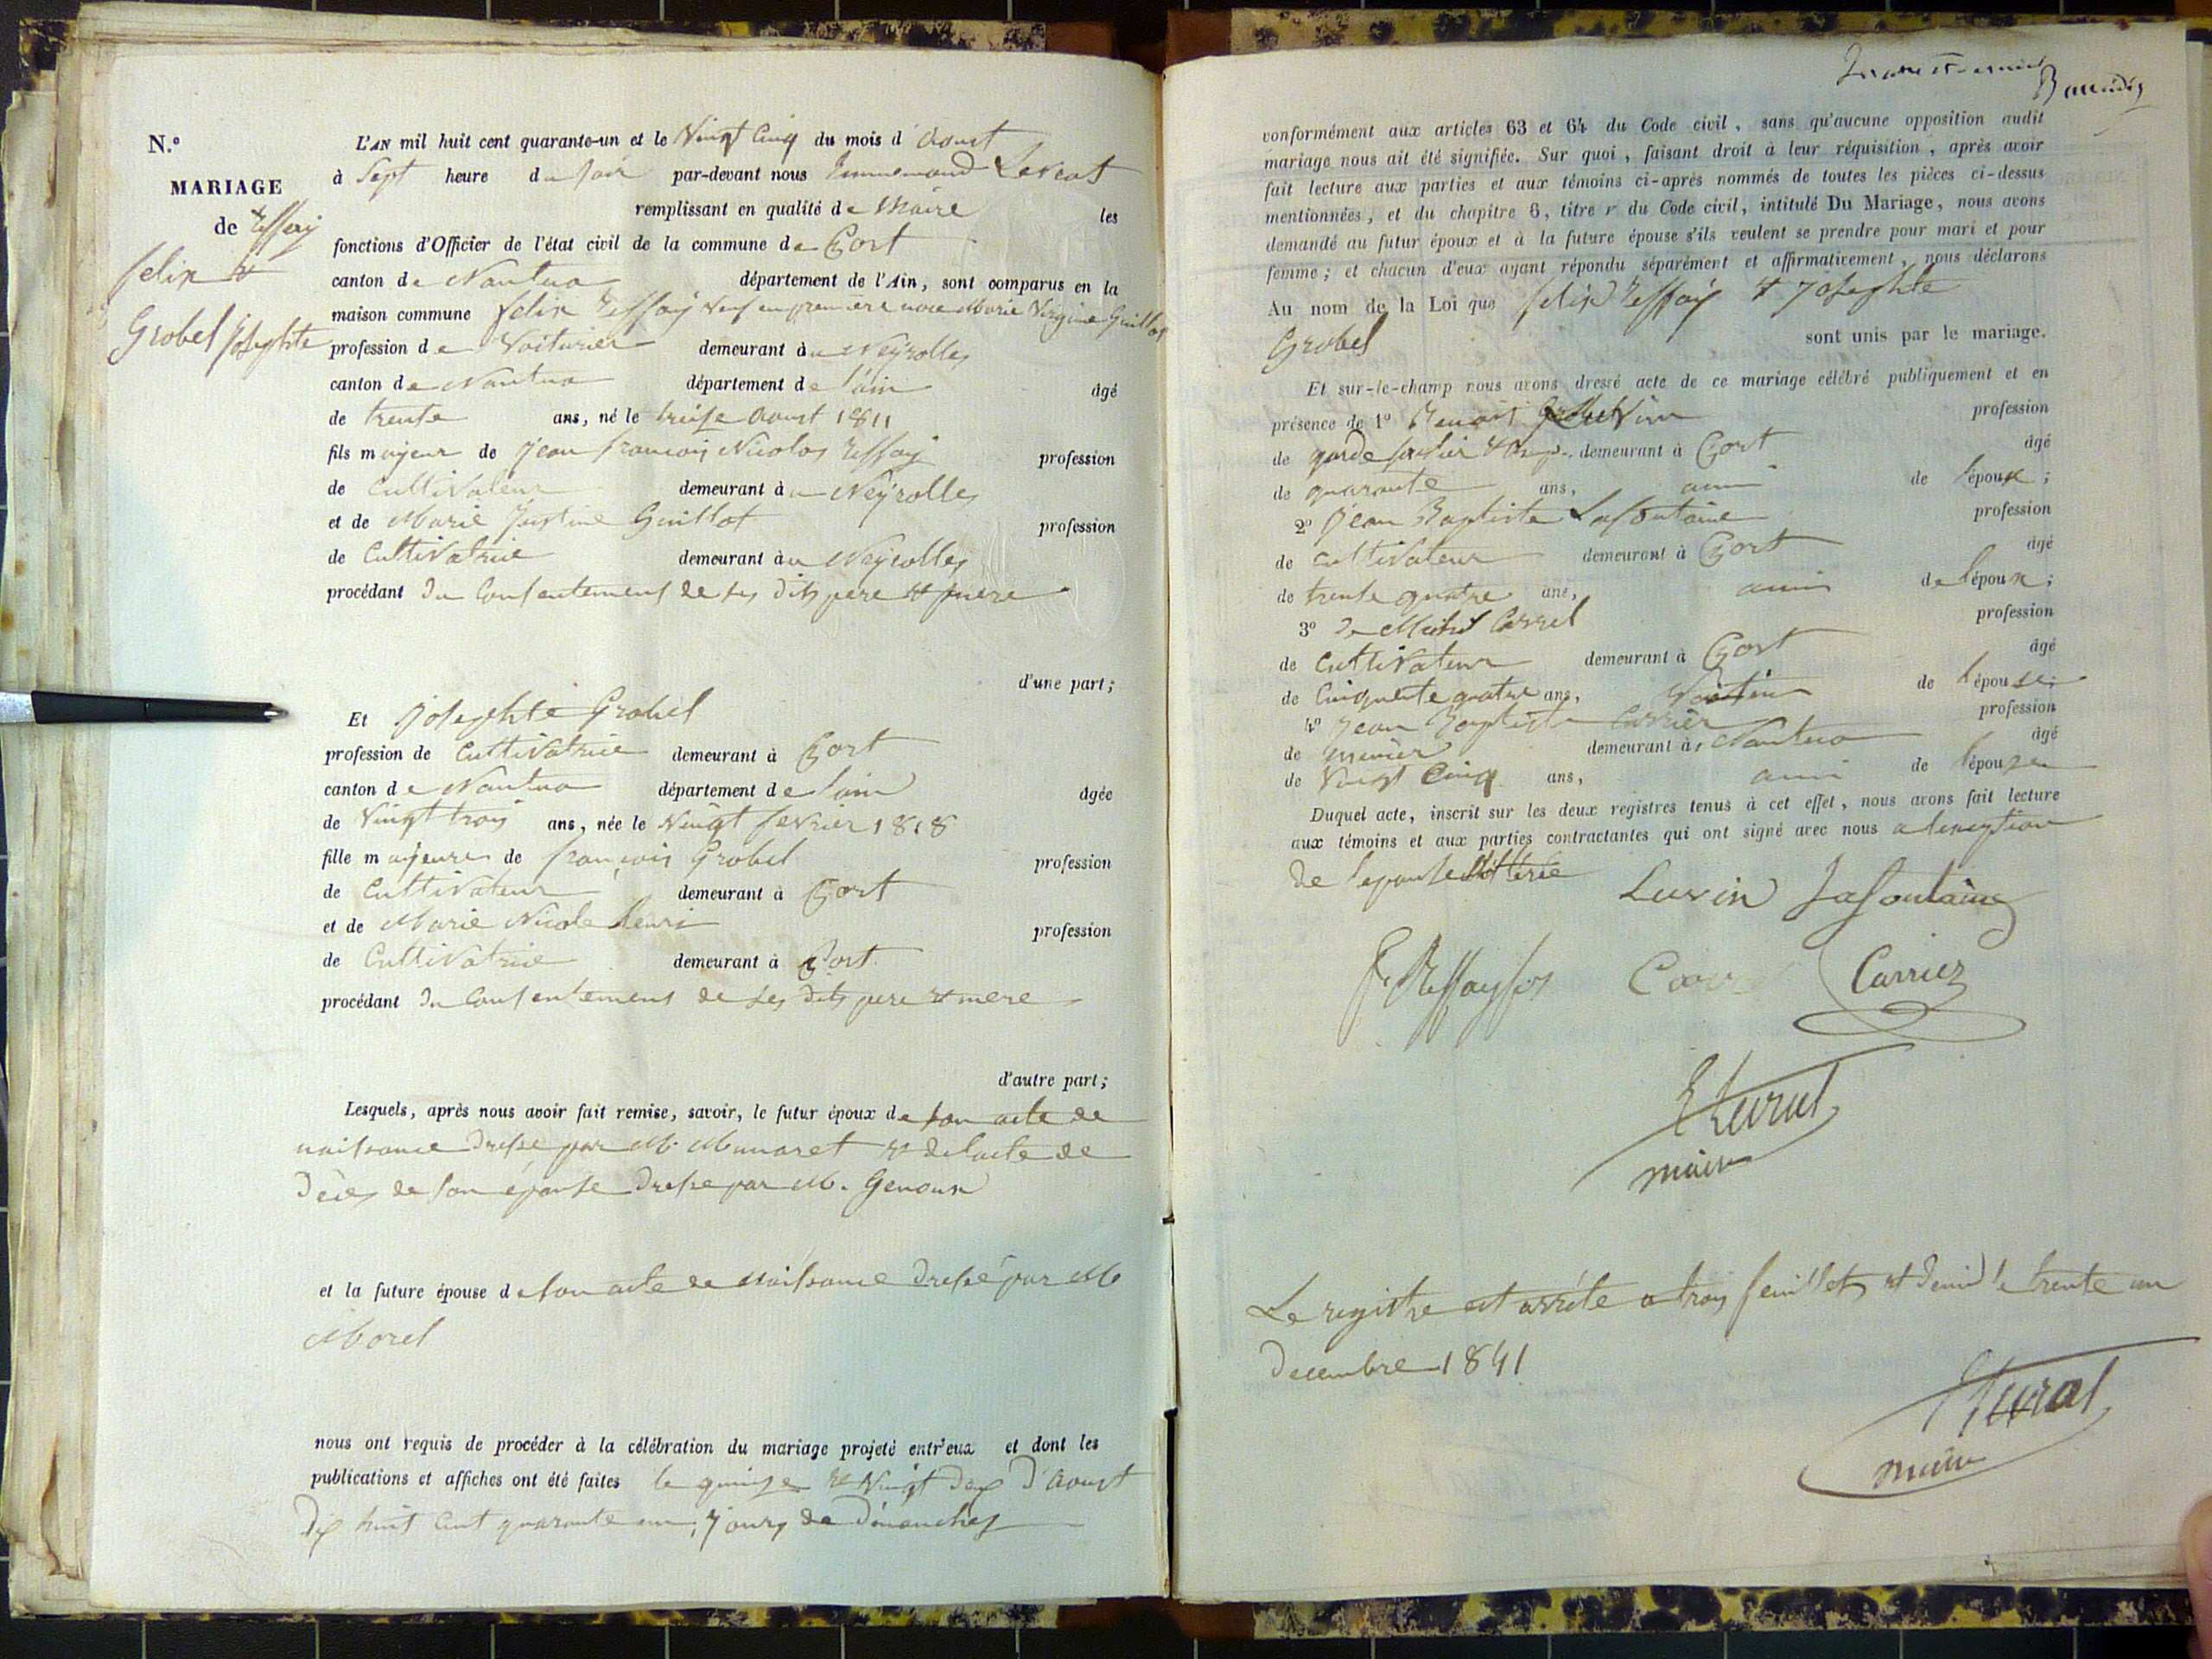 N.º
MARIAGE
de Reffay
felix et
Grobel Josephte
L'AN mil huit cent quarante-un et le Vingt Cinq du mois d'aoust
à Sept heure du soir par-devant nous Levrat
remplissant en qualité de Maire les
fonctions d'Officier de l'état civil de la commune de Port
canton de Nantua département de l'Ain, sont comparus en la
maison commune felix Reffay veuf en premiere noce Marie Virginie Guillot
profession de Voiturier demeurant au Neyrolles
canton de Nantua département de l'ain âgé
de trente ans, né le treise aoust 1811
fils majeur de jean françois Nicolas Reffay profession
de Cultivateur demeurant au Neyrolles
et de Marie Justine Guillot profession
de Cultivatrice demeurant au Neyrolles
procédant du Consentement de ses dits pere et mere
d'une part;
Et Josephte Grobel
profession de Cultivatrice demeurant à Port
canton de Nantua département de l'ain âgée
de Vingt trois ans, née le Vingt fevrier 1818
fille majeure de françois Grobel profession
de Cultivateur demeurant à Port
et de Marie Nicole henri profession
de Cultivatrice demeurant à Port
procédant du Consentement de ses dits pere et mere
d'autre part;
Lesquels, après nous avoir fait remise, savoir, le futur époux de son acte de
naissance dressé par M. Munaret et de l'acte de
décès de son épouse dressé par M. Genoux
et la future épouse de son acte de naissance dressé par M
Morel
nous ont requis de procéder à la célébration du mariage projeté entr'eux et dont les
publications et affiches ont été faites le quinze et vingt deux d'aoust
dix huit cent quarante un, jours de dimanches
conformément aux articles 63 et 64 du Code civil, sans qu'aucune opposition audit
mariage nous ait été signifiée. Sur quoi, faisant droit à leur réquisition, après avoir
fait lecture aux parties et aux témoins ci-après nommés de toutes les pièces ci-dessus
mentionnées, et du chapitre 6, titre v du Code civil, intitulé Du Mariage, nous avons
demandé au futur époux et à la future épouse s'ils veulent se prendre pour mari et pour
femme; et chacun d'eux ayant répondu séparément et affirmativement, nous déclarons
Au nom de la Loi que felix Reffay et Josephte
Grobel sont unis par le mariage.
Et sur-le-champ nous avons dressé acte de ce mariage célébré publiquement et en
présence de 1º Benoit profession
de garde demeurant à Port âgé
de quarante ans, ami de l'époux;
2º Jean Baptiste Lafontaine profession
de cultivateur demeurant à Port âgé
de trente quatre ans, ami de l'époux;
3º de Michel Carrel profession
de Cultivateur demeurant à Port âgé
de Cinquante quatre ans, Voisin de l'épouse
4º Jean Baptiste Carrier profession
de demeurant à Nantua âgé
de Vingt Cinq ans, ami de l'épouse
Duquel acte, inscrit sur les deux registres tenus à cet effet, nous avons fait lecture
aux témoins et aux parties contractantes qui ont signé avec nous a l'exeption
de l'epouse illitérée
Luvin Lafontaine
F. Reffay fils Carrier
Levrat
maire
Le registre est arrété a trois feuillets et demi le trente un
decembre 1841
Levrat
maire